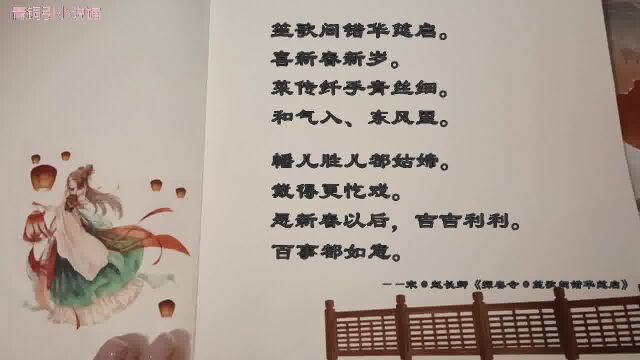 笙歌间错华筵启。
喜新春新岁。
菜传纤手青丝细。
和气入、东风里。
幡儿胜儿都姑媂。
戴得更忔戏。
愿新春以后，吉吉利利。
百事都如意。
——宋·赵长卿《探春令·笙歌间错华筵启》